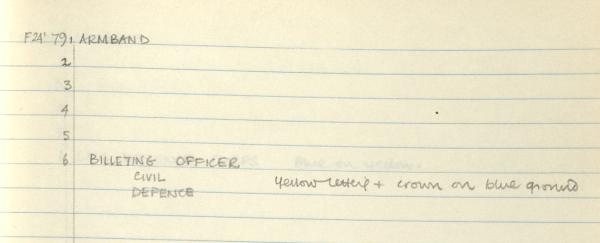 F24' 79. 1 ARMBAND
2
3
4
5
6 BILLETING OFFICER
CIVIL yellow letters + crown on blue ground
DEFENCE